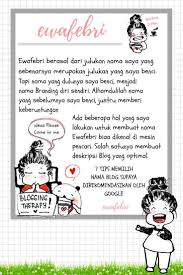 ewafebri
Ewafebri berasal dari julukan nama saya yang
sebenarnya merupakan julukan yang saya benci.
Tapi nama yang dulunya saya benci, menjadi
nama Branding diri sendiri. Alhamdulillah nama
yang sebelumnya saya benci, justru memberi
keberuntungan
Ada beberapa hal yang saya
lakukan untuk membuat nama
Ewafebri bisa dikenal di dunia
maya. Salah satunya membuat
deskripsi Blog yang optimal.
Ideas Please
Come to me
BLOGGING
THERAPY!
7 TIPS MEMILIH
NAMA BLOG SUPAYA
DIREKOMENDASIKAN OLEH
GOOGLE
ewafebri